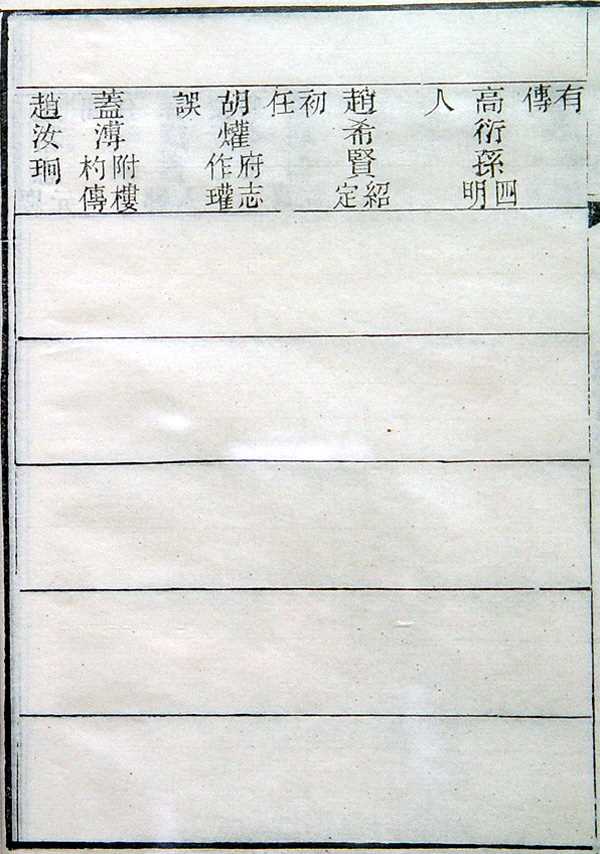 有傳
高衍孫四明
人
趙希賢紹定
初任
胡爟府志作瓘
誤
蓋溥附樓杓傳
趙汝珦